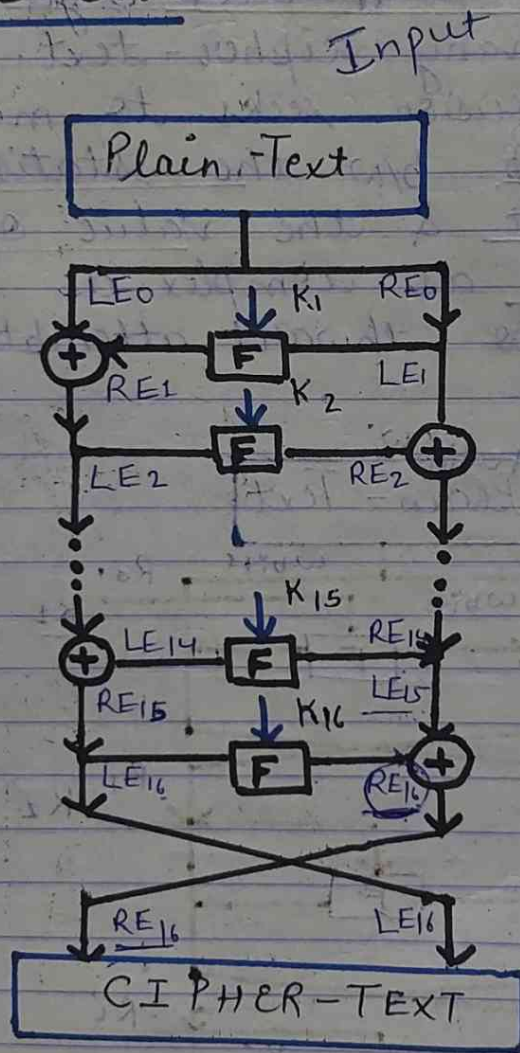 Input
Plain-Text
LE0 K1 RE0
+ F
RE1 K2 LE1
F +
LE2 RE2
K15
LE14 RE14
+ F
RE15 K16 LE15
F +
LE16 RE16
RE16 LE16
CIPHER-TEXT